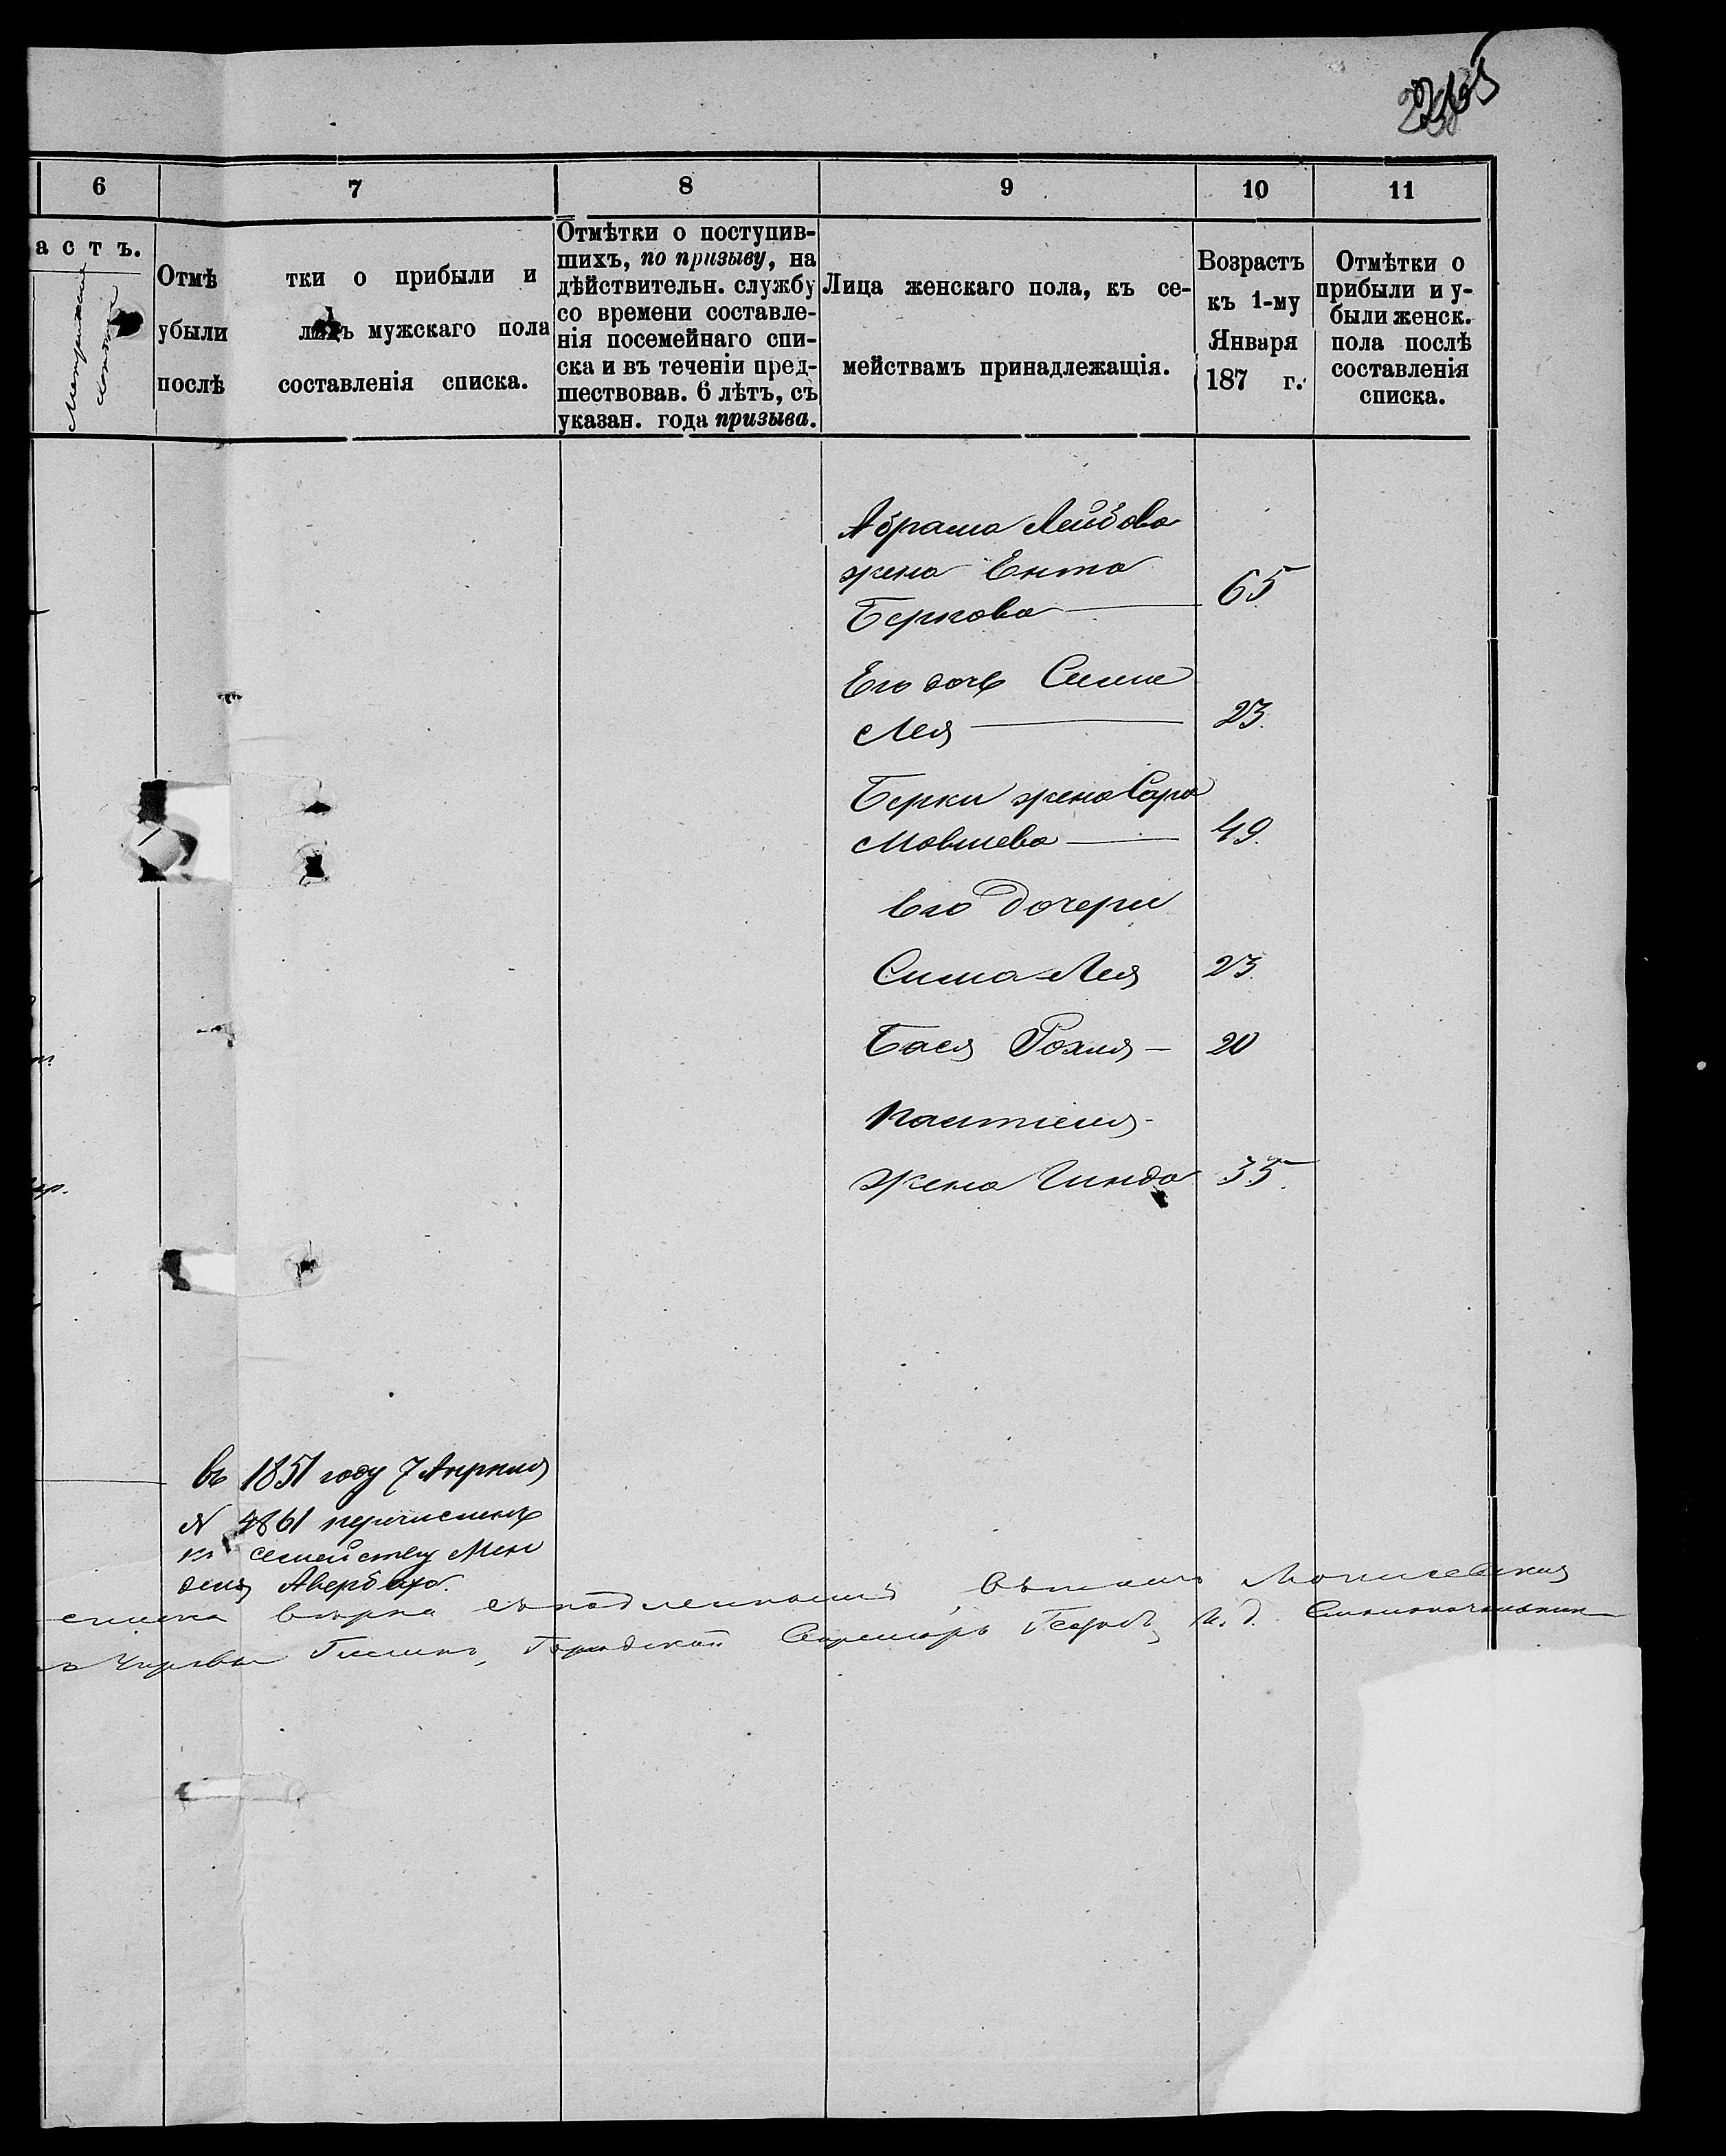 6 7 8 9 10 11
астъ.
Отмѣтки о прибыли и
убыли лицъ мужскаго пола
послѣ составленія списка.
Отмѣтки о поступив-
шихъ, по призыву, на
дѣйствительн. службу
со времени составле-
нія посемейнаго спи-
ска и въ теченіи пред-
шествовав. 6 лѣтъ, съ
указан. года призыва.
Лица женскаго пола, къ се-
мействамъ принадлежащія.
Возрастъ
къ 1-му
Января
187 г.
Отмѣтки о
прибыли и у-
были женск.
пола послѣ
составленія
списка.
Абрама Лейбова
жена Ента
Беркова 65
Его дочь Сима
Лея 23.
Берки жена Сара
Мовшева 49.
Его дочери
Сима Лея 23.
Бася Рохля 20
жена Гинда 35.
въ 1851 году 7 Апрѣля
N 4861 перечисленъ
къ семейству Мен
деля Авербаха.
списка вѣрна съ подлиннымъ
Городской Секретарь И. д. Столоначальник